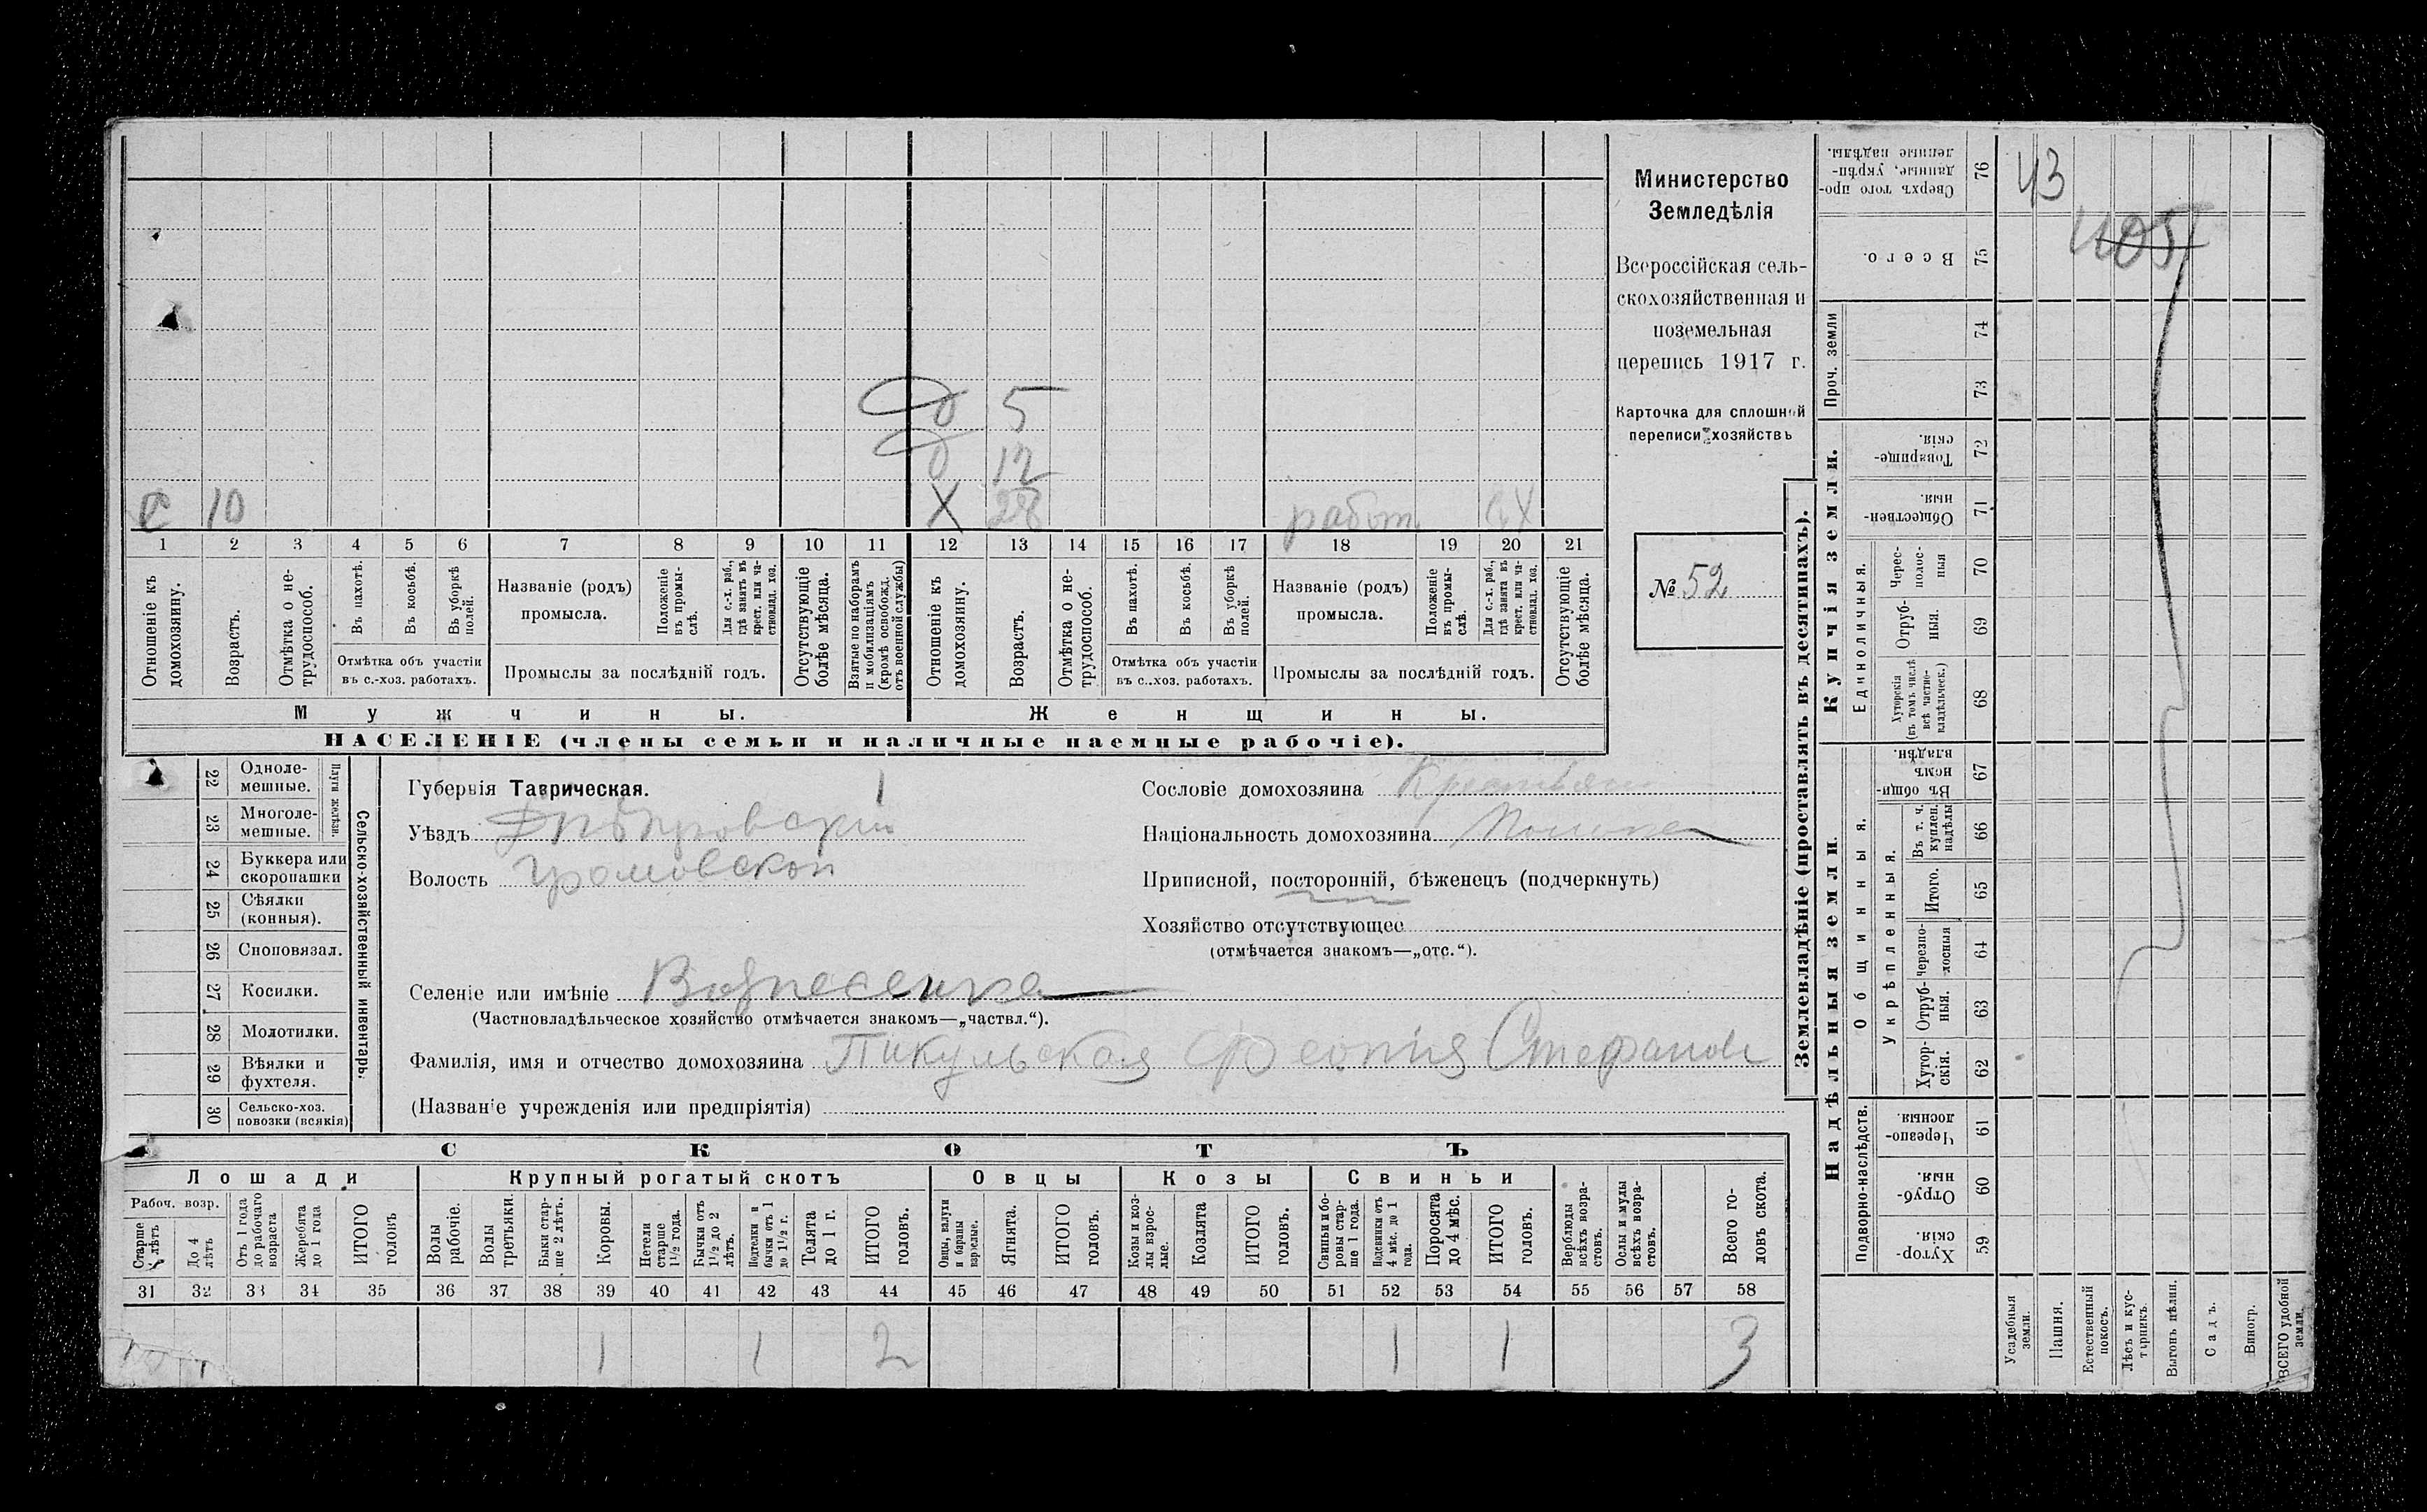 Министерство
Земледѣлія
Всероссійская сель-
скохозяйственная и
поземельная
перепись 1917 г.
Карточка для сплошной
переписи хозяйствъ
№ 52
д 5
д 12
с 10 Х 28 работ. сх
1 2 3 4 5 6 7 8 9 10 11 12 13 14 15 16 17 18 19 20 21
Отношеніе къ домохозяину.
Возрастъ.
Отмѣтка о не-трудоспособ.
Въ пахотѣ.
Въ косьбѣ.
Въ уборкѣ полей.
Отмѣтка объ участіи
въ с.-хоз. работахъ.
Названіе (родъ)
промысла.
Положеніе въ промы-слѣ.
Для с.-х. раб., гдѣ занятъ въ крест. или ча-стновлад. хоз.
Промыслы за послѣдній годъ.
Отсутствующіе болѣе мѣсяца.
Взятые по наборамъ и мобилизаціямъ (кромѣ освобожд. отъ военной службы)
Отношеніе къ домохозяину.
Возрастъ.
Отмѣтка о не-трудоспособ.
Въ пахотѣ.
Въ косьбѣ.
Въ уборкѣ полей.
Отмѣтка объ участіи
въ с..хоз. работахъ.
Названіе (родъ)
промысла.
Положеніе въ промы-слѣ.
Для с.-х. раб., гдѣ занята въ крест. или ча-стновлад. хоз.
Промыслы за послѣдній годъ.
Отсутствующіе болѣе мѣсяца.
Мужчины. Женщины.
НАСЕЛЕНІЕ (члены семьи и наличные наемные рабочіе).
Сельско-хозяйственный инвентарь.
Плуги желѣзн.
22 Одноле-мешные.
23 Многоле-мешные.
24 Буккера или скоропашки
25 Сѣялки (конныя).
26 Сноповязал.
27 Косилки.
28 Молотилки.
29 Вѣялки и фухтеля.
30 Сельско-хоз. повозки (всякія)
Губернія Таврическая. 1
Уѣздъ Днѣпровскій
Волость Громовской
Селеніе или имѣніе Вознесенка
(Частновладѣльческое хозяйство отмѣчается знакомъ—„частвл.“).
Фамилія, имя и отчество домохозяина Пикульская Стефанов
(Названіе учрежденія или предпріятія)
Сословіе домохозяина Крестьян
Національность домохозяина
Приписной, посторонній, бѣженецъ (подчеркнуть)
Хозяйство отсутствующее
(отмѣчается знакомъ—„отс.“).
СКОТЪ
Лошади Крупный рогатый скотъ Овцы Козы Свиньи
Рабоч. возр.
Старше 4 лѣтъ
До 4 лѣтъ
Отъ 1 года до рабочаго возраста
Жеребята до 1 года
ИТОГО головъ
Волы рабочіе.
Волы третьяки.
Быки стар-ше 2 лѣтъ.
Коровы.
Нетели старше 1½ года.
Бычки отъ 1½ до 2 лѣтъ.
Подтелки и бычки отъ 1 до 1½ г.
Телята до 1 г.
ИТОГО головъ.
Овцы, валухи и бараны взрослые.
Ягнята.
ИТОГО головъ.
Козы и коз-лы взрос-лые.
Козлята
ИТОГО головъ.
Свиньи и бо-ровы стар-ше 1 года.
Подсвинки отъ 4 мѣс. до 1 года.
Поросята до 4 мѣс.
ИТОГО головъ.
Верблюды всѣхъ возра-стовъ.
Ослы и мулы всѣхъ возра-стовъ.
Всего го-ловъ скота.
31 32 33 34 35 36 37 38 39 40 41 42 43 44 45 46 47 48 49 50 51 52 53 54 55 56 57 58
1 1 2 1 1 3
Землевладѣніе (проставлять въ десятинахъ).
Купчія земли.
Надѣльныя земли.
Сверхъ того про-данные, укрѣп-ленные надѣлы. 76
Всего. 75
Проч. земли
74
73
Товарище-скія. 72
Обществен-ныя. 71
Единоличныя.
Черес-полос-ныя 70
Отруб-ныя. 69
Хуторскія (въ томъ числѣ всѣ частно-владѣльческ.) 68
Общинныя.
Въ общи-номъ владѣн. 67
Укрѣпленныя.
Въ т. ч. куплен. надѣлы 66
Итого. 65
Черезпо-лосныя 64
Отруб-ныя. 63
Хутор-скія. 62
Подворно-наслѣдств.
Черезпо-лосныя 61
Отруб-ныя. 60
Хутор-скія. 59
Усадебныя земли.
Пашня.
Естественный покосъ.
Лѣсъ и кус-тарникъ.
Выгонъ цѣлин.
Садъ.
Виногр.
ВСЕГО удобной земли.
43
405